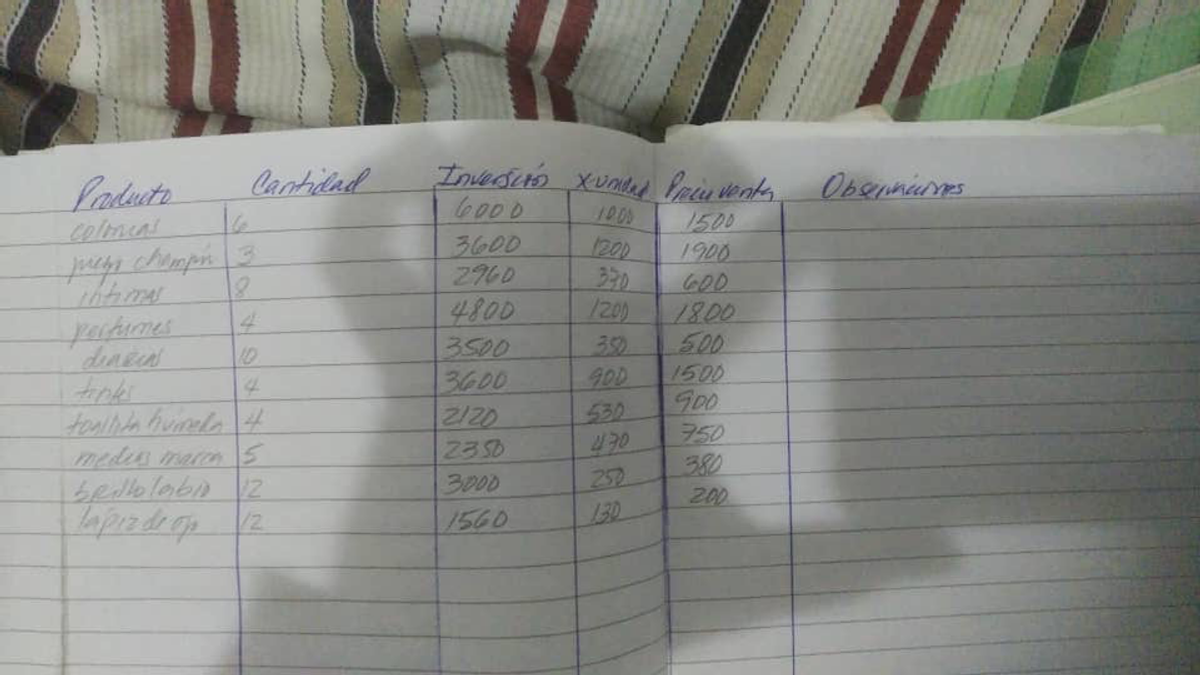 Producto Cantidad Inversión x unidad Precio venta Observaciones
colonias 6 6000 1000 1500
juego champú 3 3600 1200 1900
intimas 8 2960 370 600
perfumes 4 4800 1200 1800
10 3500 350 500
tintes 4 3600 900 1500
toallita húmeda 4 2120 530 900
medias marca 5 2350 470 750
brillo labio 12 3000 250 380
lápiz de ojo 12 1560 130 200